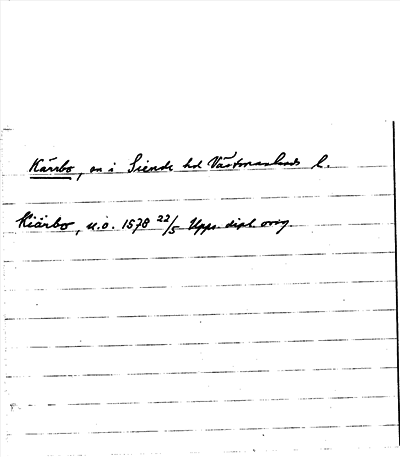 Kärrbo, sn i Siende hd Västmanlands l.
Kiärbo, u.o. 1578 22/5 Upps. dipl. orig.